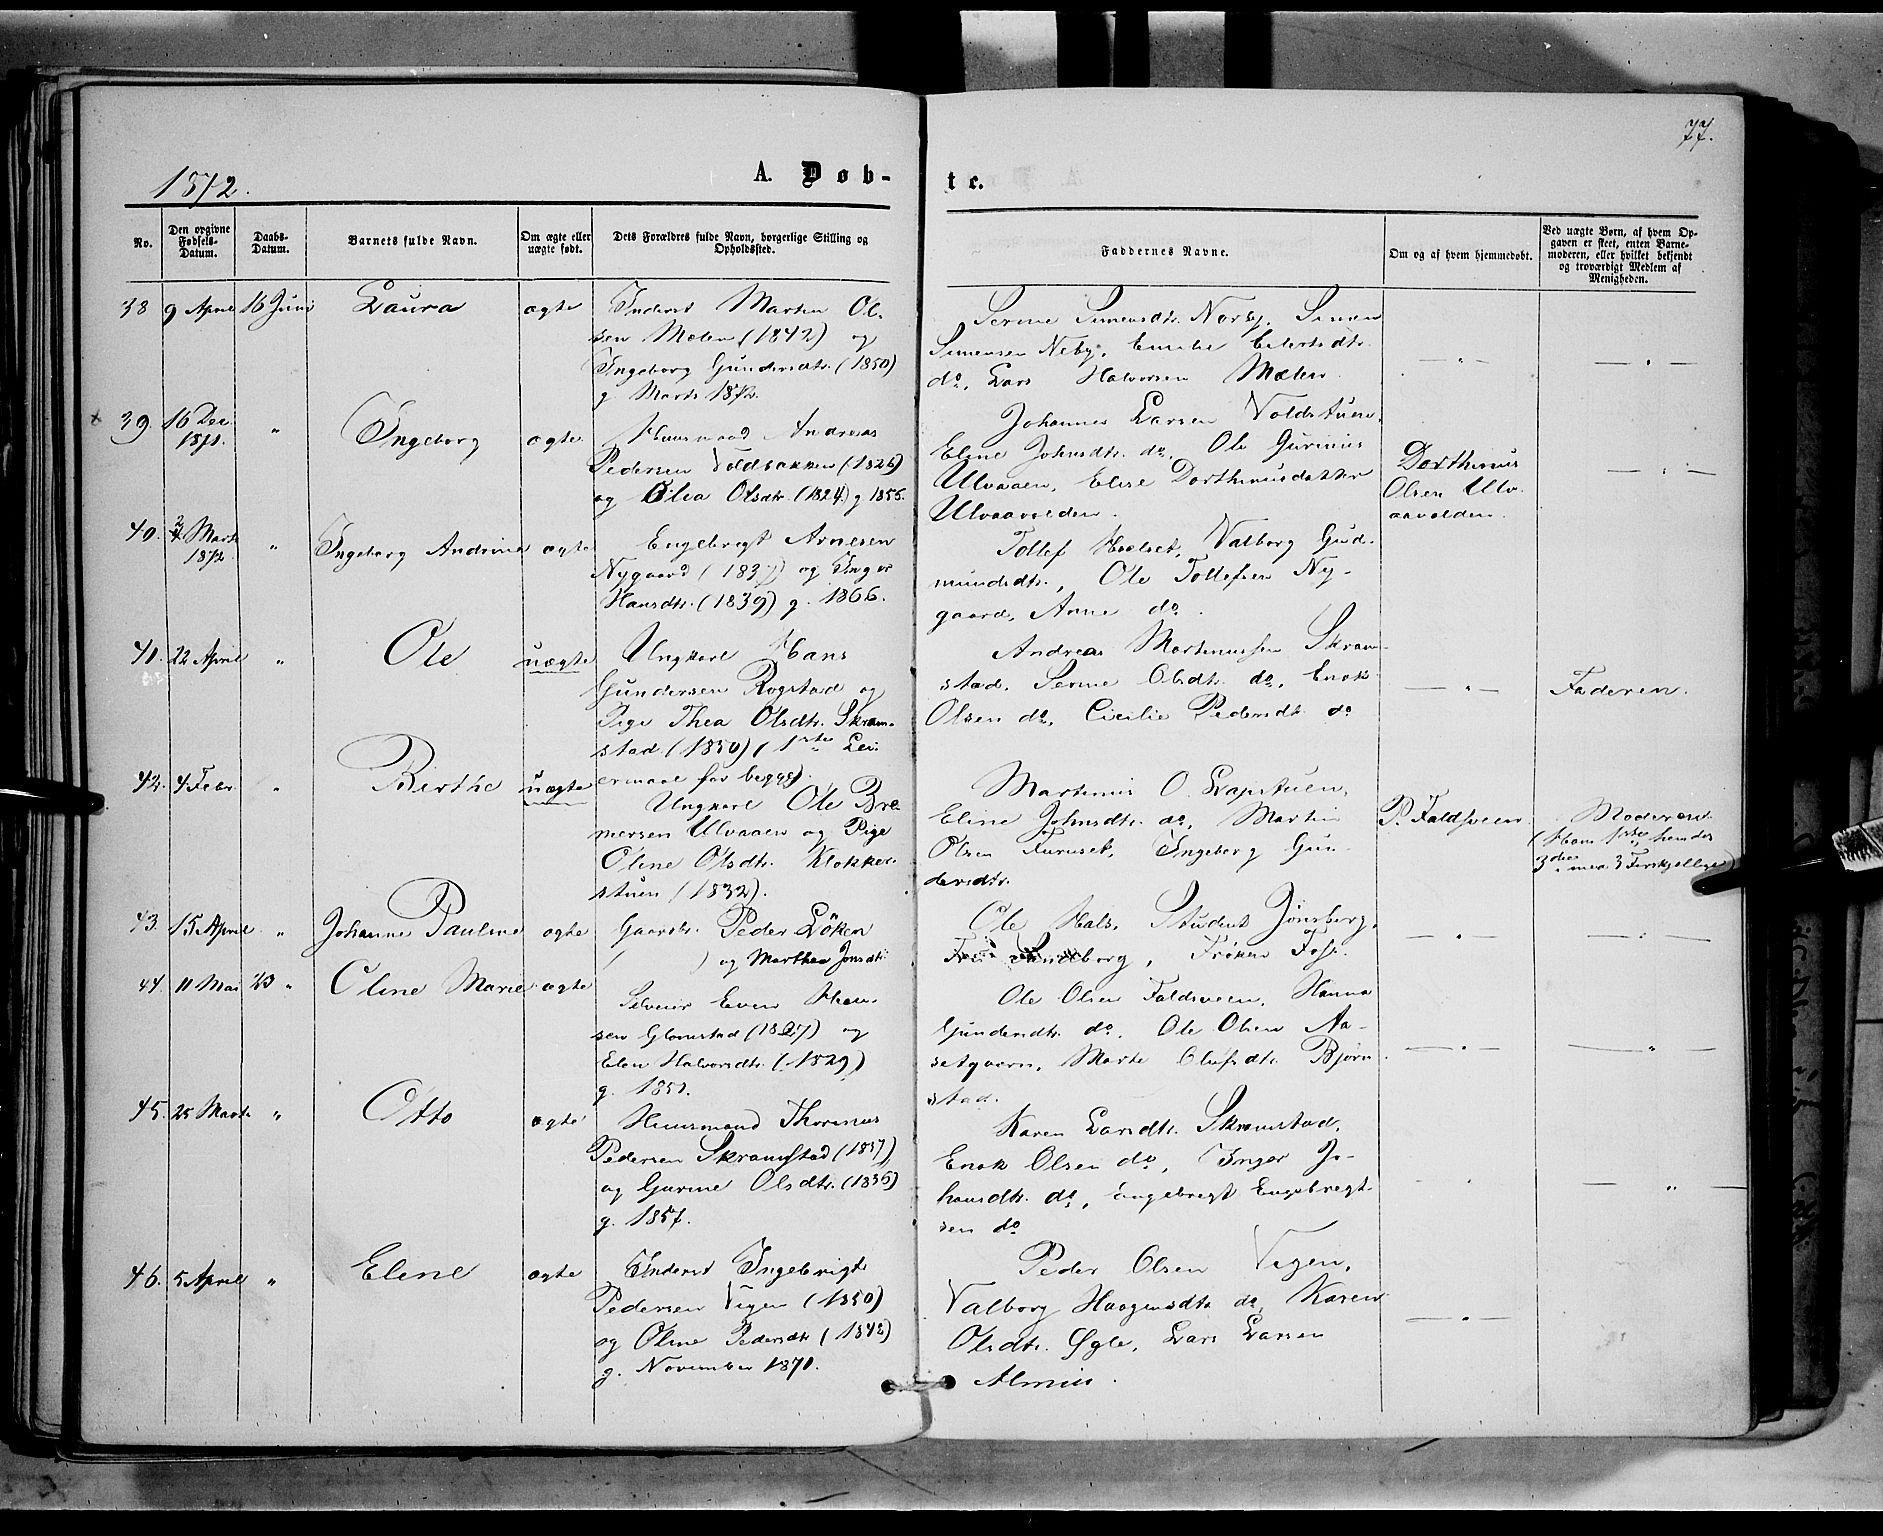 77.
1872.
A. Døb-
te.
No.
Den opgivne Fødsels-Datum.
Daabs-Datum.
Barnets fulde Navn.
Om ægte eller uægte født.
Dets Forældres fulde Navn, borgerlige Stilling og Opholdssted.
Faddernes Navne.
Om og af hvem hjemmedøbt.
Ved uægte Børn, af hvem Opgaven er skeet, enten Barnemoderen, eller hvilket bekjendt og troværdigt Medlem af Menigheden.
38 9 April 16 Juni Laura ægte
Inderst Marten Ol-
sen Mælen (1842) og
Ingeborg Gundersdtr. (1850)
g Marts 1872.
Serine Simensdtr. Norby, Simen
Simensen Neby, Emilie Eilertsdtr.
do, Lars Halvorsen Mælen
— " —
— " —
x 39. 16 Dec 1871. " Ingeborg ægte
Huusmand Andreas
Pedersen Voldbakken (1826)
og Olea Olsdtr. (1824) g 1855.
Johannes Larsen Voldstuen,
Eline Johnsdtr. do, Ole Gurinius
Ulvaaen, Elise Dorthinusdatter
Ulvaavolden.
Dorthinus
Olsen Ulv-
aavolden.
— " —
40. 24 Marts 1872. " Ingeborg Andrine ægte
Engebregt Arnesen
Nygaard (1837) og Inger
Hansdtr. (1839) g. 1866.
Tollef Hoelset, Valborg Gud-
mundsdtr., Ole Tollefsen Ny-
gaard, Anne do.
41. 22 April " Ole uægte
Ungkarl Hans
Gundersen Rogstad og
Pige Thea Olsdtr. Skram-
stad (1850) (1ste Lei-
ermaal for begge).
Andreas Martinussen Skram-
stad, Serine Olsdtr. do, Enok
Olsen do, Cicilie Pedersdtr. do
— " —
Faderen.
42. 4 Febr. " Birthe uægte
Ungkarl Ole Bre-
nersen Ulvaaen og Pige
Oline Olsdtr. Klokker-
stuen (1832).
Martinus O. Lapstuen,
Eline Johnsdtr. do, Martin
Olsen Furuset, Ingeborg Gun-
dersdtr.
P. Faldsveen
Moderen.
(Hans 1ste, hendes
3die med 3 Forskjellige)
43. 15 April " Johanne Pauline ægte
Gaardbr. Peder Löken
( ) og Marthea Jonsdtr.
Ole Hals, Student Jönsberg,
Frue Sundborg, Frøken Foss.
— " —
— " —
44. 11 Mai 23 " Oline Marie ægte
Selveier Even Han-
sen Glomstad (1827) og
Elen Halvorsdtr. (1829)
g. 1851.
Ole Olsen Faldsveen, Hanna
Gundersdtr. do, Ole Olsen Aa-
setgaarn, Marte Olufsdtr. Bjørn-
stad.
— " —
— " —
45. 25 Marts " Otto ægte
Huusmand Thorinus
Pedersen Skramstad (1837)
og Gurine Olsdtr. (1836)
g. 1857.
Karen Larsdtr. Skramstad,
Enok Olsen do, Inger Jo-
hansdtr. do, Engebregt Engebregt-
sen do
"
— " —
46. 5 April " Eline ægte
Inderst Ingebrigt
Pedersen Vigen (1850)
og Oline Pedersdtr. (1842)
g. November 1871.
Peder Olsen Vigen,
Valborg Haagensdtr. do, Karen
Olsdtr. Øgle, Lars Larsen
Almius.
— " —